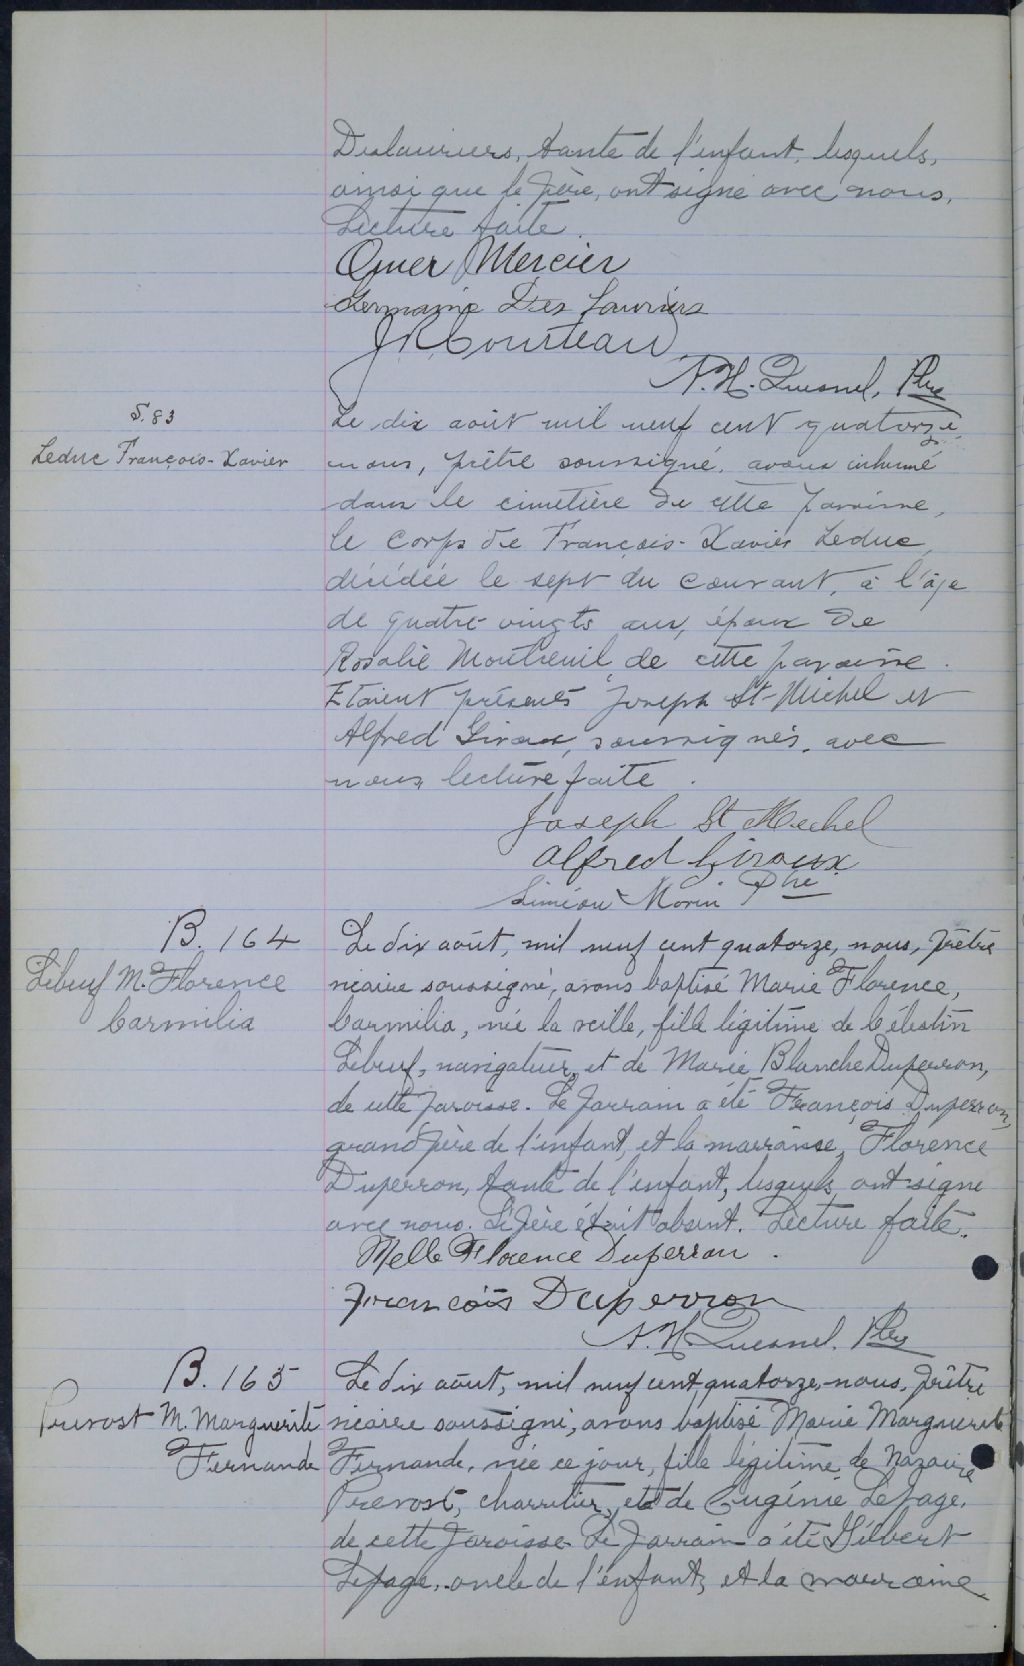 Deslauriers, tante de l'enfant, lesquels,
ainsi que le père, ont signé avec nous,
Lecture faite.
Omer Mercier
Germaine Des Lauriers
J R Courteau
A. H. Quesnel, Ptre
S. 83
Leduc François-Xavier
Le dix août mil neuf cent quatorze
nous, prêtre soussigné, avons inhumé
dans le cimetière de cette paroisse,
le corps de François-Xavier Leduc,
décédée le sept du courant, à l'âge
de quatre-vingts ans, époux de
Rosalie Montreuil de cette paroisse.
Etaient présents Joseph St-Michel et
Alfred Giroux, soussignés, avec
nous lecture faite.
Joseph St Mechel
Alfred Giroux
Siméon Morin Ptre
B. 164
Lebeuf M. Florence
Carmilia
Le dix août, mil neuf cent quatorze, nous, prêtre
vicaire soussigné, avons baptisé Marie Florence,
Carmilia, née la veille, fille légitime de Célestin
Lebeuf, navigateur, et de Marie Blanche Duperron,
de cette paroisse. Le parrain a été François Duperron,
grand père de l'enfant, et la marraine, Florence
Duperron, tante de l'enfant, lesquels, ont signé
avec nous. Le père était absent. Lecture faite.
Melle Florence Duperron.
François Duperron
A. H. Quesnel, Ptre
B. 165
Prevost M. Marguerite
Fernande
Le dix août, mil neuf cent quatorze, nous, prêtre
vicaire soussigné, avons baptisé Marie Marguerite
Fernande, née ce jour, fille légitime de Nazaire
Prevost, charretier, et de Eugénie Lepage,
de cette paroisse. Le parrain a été Gilbert
Lepage, oncle de l'enfant, et la marraine